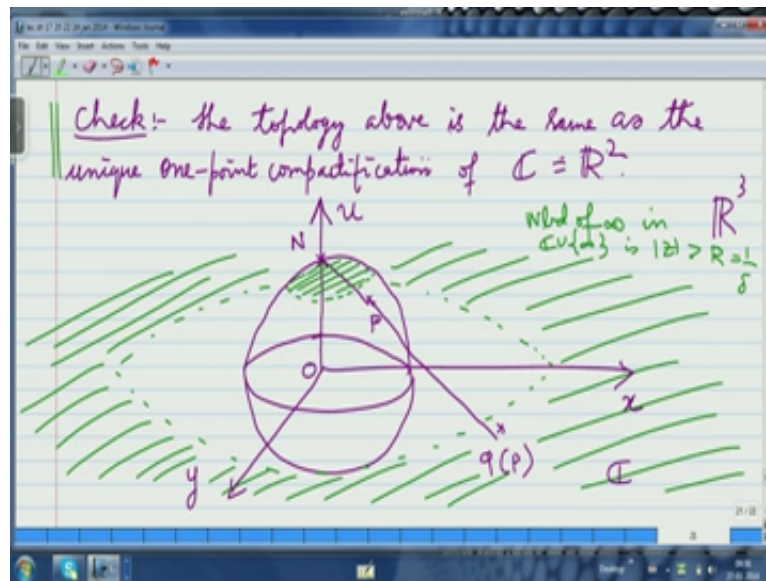 File Edit View Insert Actions Tools Help
Check:- the topology above is the same as the
unique one-point compactification of ℂ ≡ ℝ².
u
N
nbd of ∞ in
ℂ∪{∞} is |z| > R = 1/δ
ℝ³
P
O
x
y
q(P)
ℂ